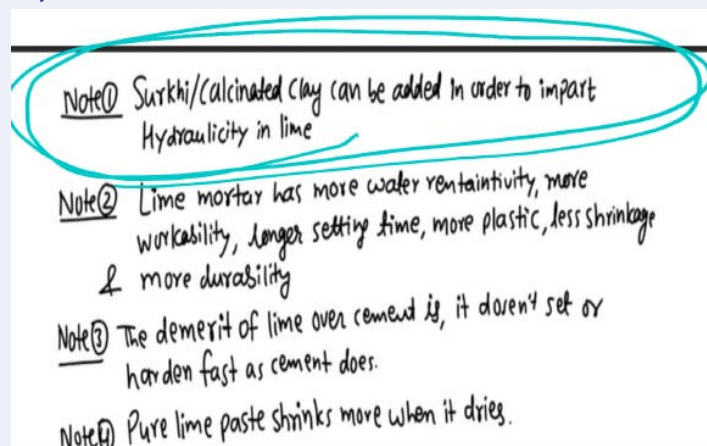 Note① Surkhi/Calcinated Clay can be added in order to impart
Hydraulicity in lime
Note② Lime mortar has more water rentaintivity, more
workability, longer setting time, more plastic, less shrinkage
& more durability
Note③ The demerit of lime over cement is, it doesn't set or
harden fast as cement does.
Note④ Pure lime paste shrinks more when it dries.